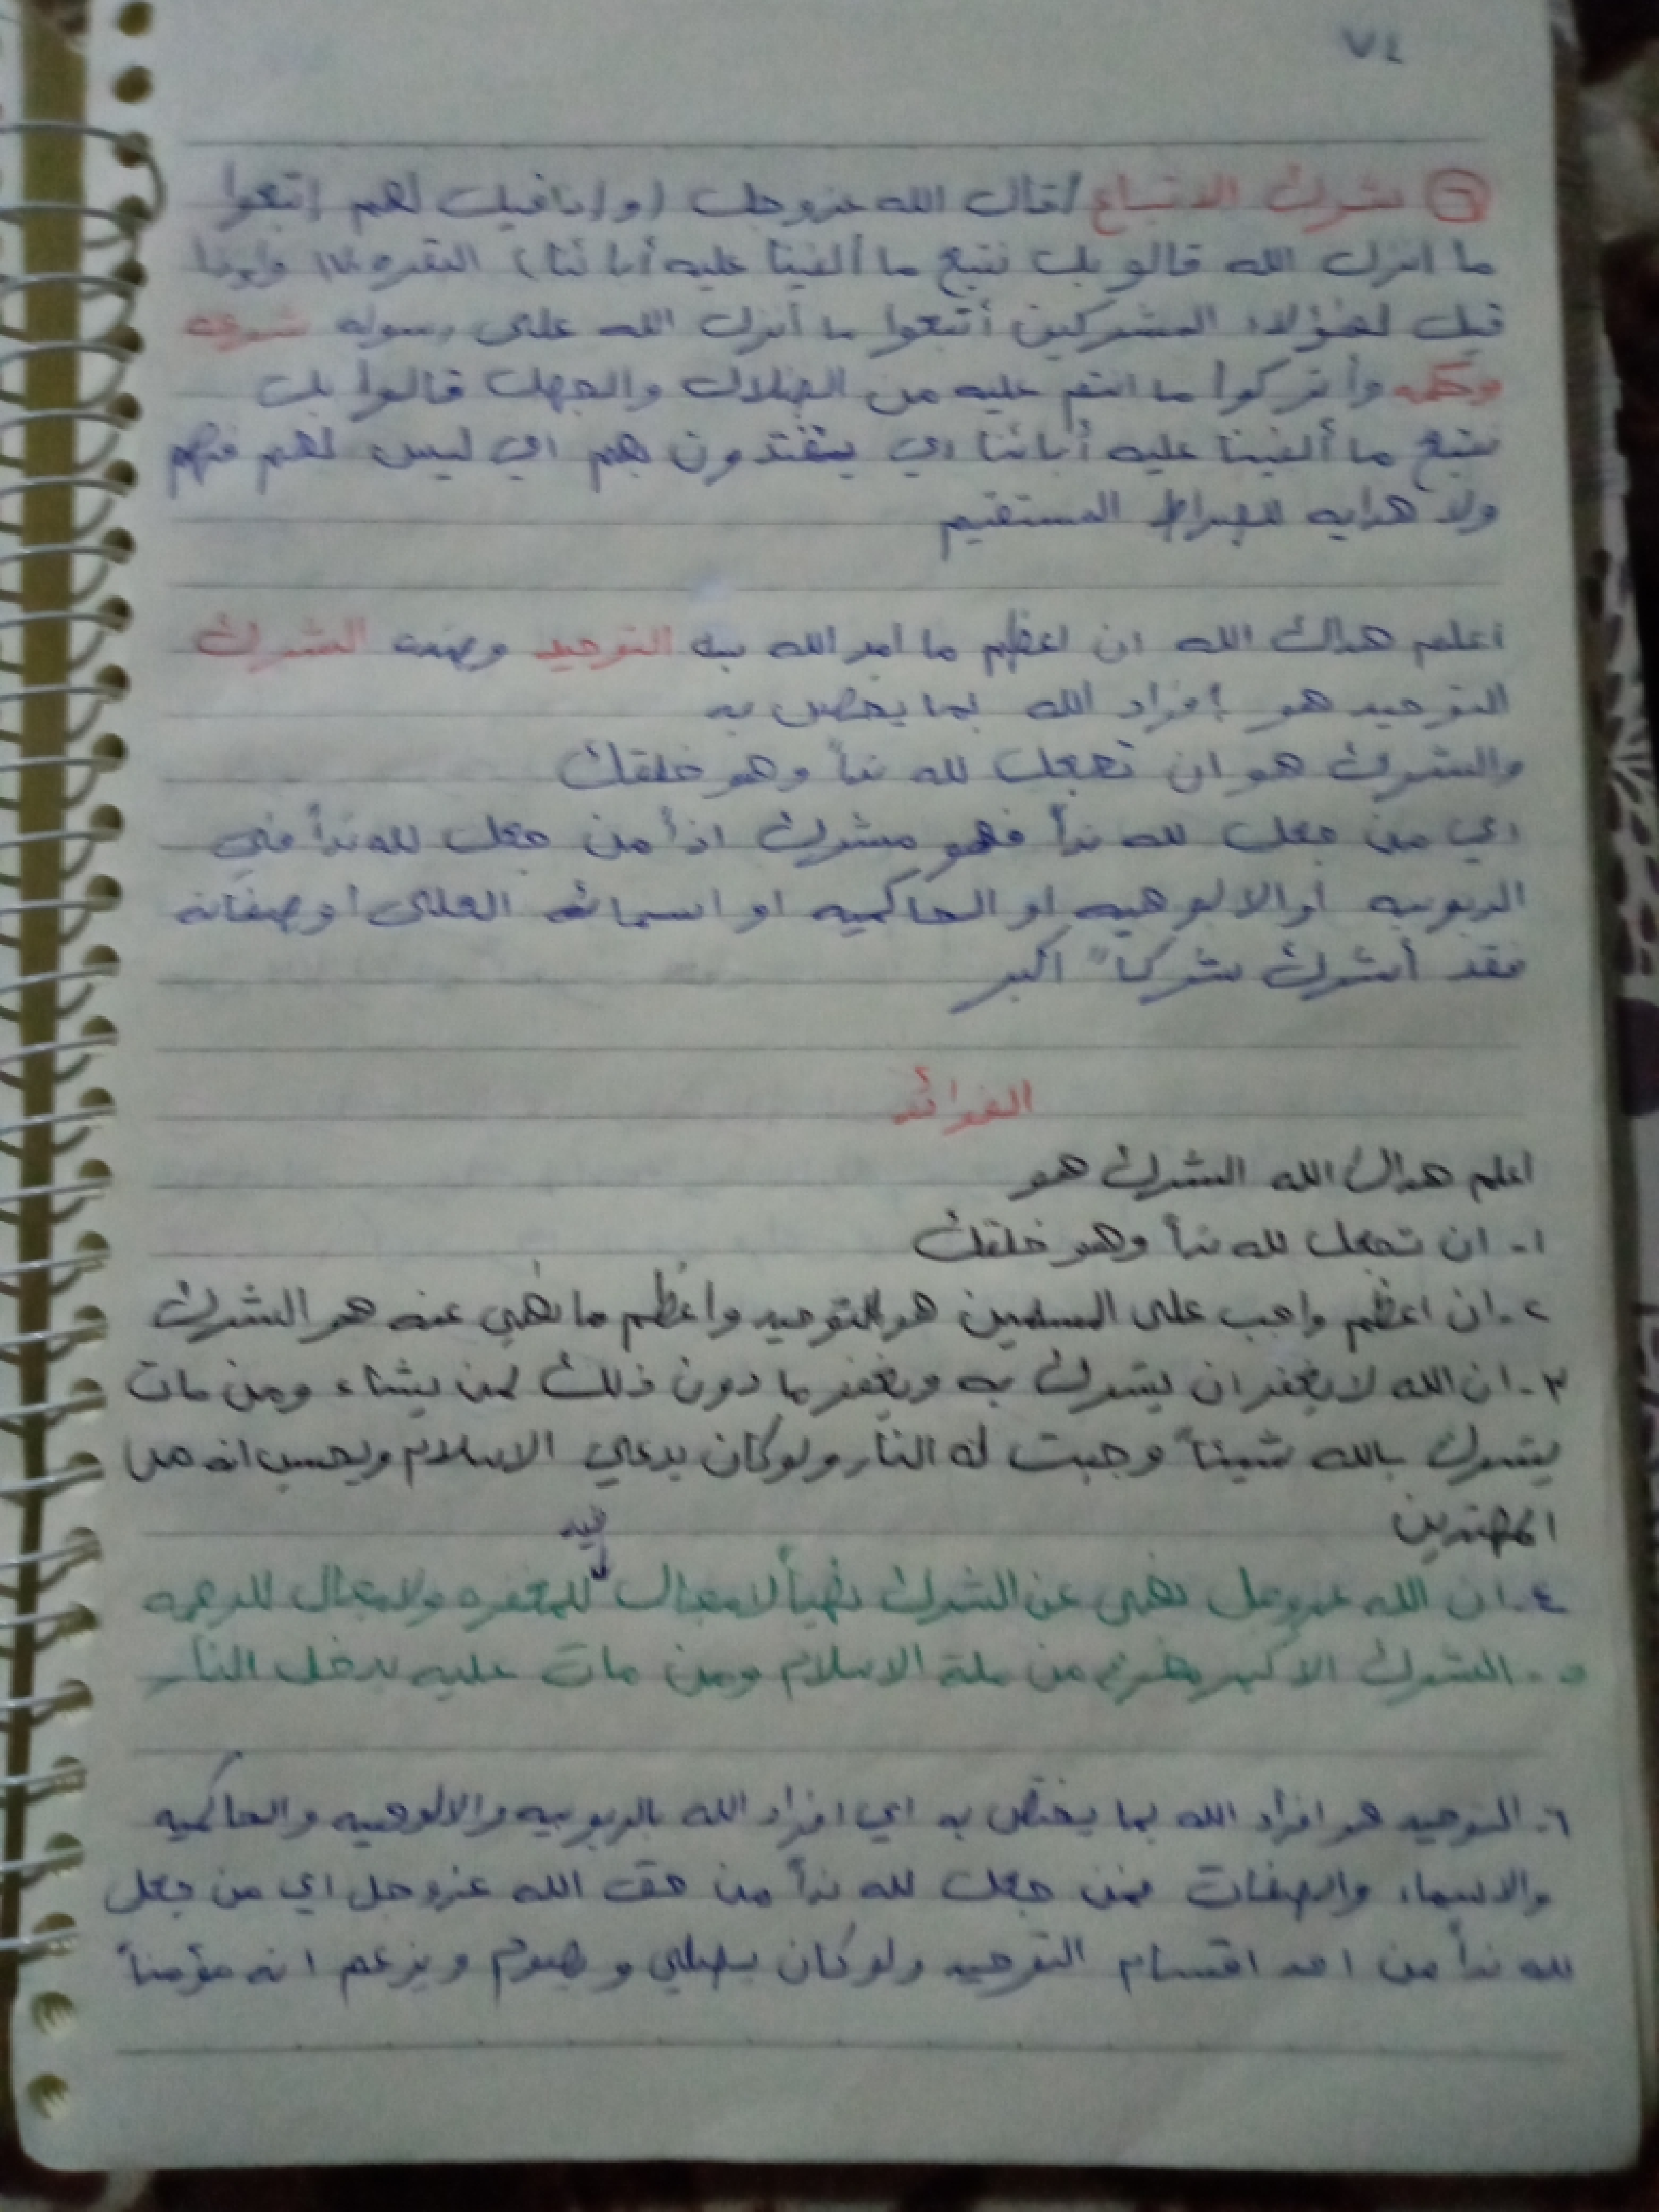 ٧٤
٦ شرك الاتباع لقال الله عزوجل (واذا قيل لهم اتبعوا
ما انزل الله قالو بل نتبع ما ألفينا عليه أبائنا) البقره ١٧٠ واذا
قيل لهؤلاء المشركين أتبعوا ما أنزل الله على رسوله شرعه
وحكمه وأتركوا ما انتم عليه من الضلال والجهل قالوا بل
نتبع ما ألفينا عليه أبائنا اي يقتدون بهم اي ليس لهم فهم
ولا هدايه للصراط المستقيم
أعلم هداك الله ان اعظم ما امر الله به التوحيد وضده الشرك
التوحيد هو إفراد الله بما يختص به
والشرك هو ان تجعل لله نداً وهو خلقك
اي من جعل لله نداً فهو مشرك اذاً من جعل لله نداً في
الربوبيه او الالوهيه او الحاكميه او اسمائه العلى او صفاته
فقد أشرك شركاً اكبر
الفوائد
اعلم هداك الله الشرك هو
١- ان تجعل لله نداً وهو خلقك
٢- ان اعظم واجب على المسلمين هو التوحيد واعظم ما نهي عنه هو الشرك
٣- ان الله لا يغفر ان يشرك به ويغفر ما دون ذلك لمن يشاء ومن مات
يشرك بالله شيئاً وجبت له النار ولو كان يدعي الاسلام ويحسب انه من
المهتدين
فيه
٤- ان الله عزوجل نهى عن الشرك نهياً لا مجال للمغفره ولا مجال للرحمه
٥- الشرك الاكبر مخرج من ملة الاسلام ومن مات عليه يدخل النار
٦- التوحيد هو افراد الله بما يختص به اي افراد الله بالربوبيه والالوهيه والحاكميه
والاسماء والصفات فمن جعل لله نداً من حق الله عزوجل اي من جعل
لله نداً من احد اقسام التوحيد ولو كان يصلي و يصوم ويزعم انه مؤمناً